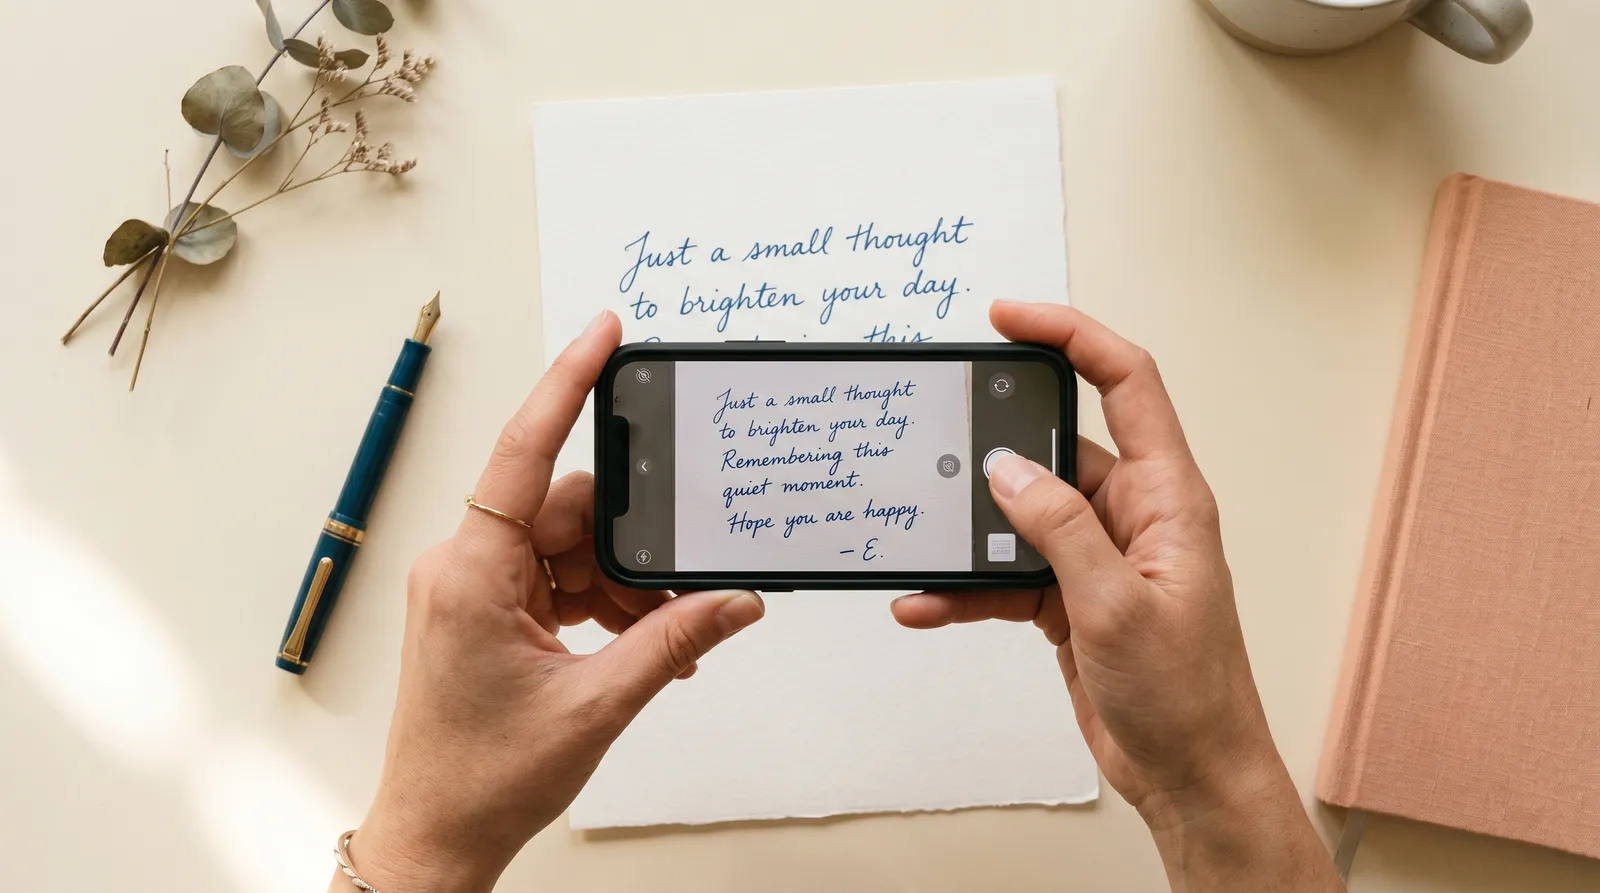 Just a small thought
to brighten your day.
this
Just a small thought
to brighten your day.
Remembering this
quiet moment.
Hope you are happy.
– E.